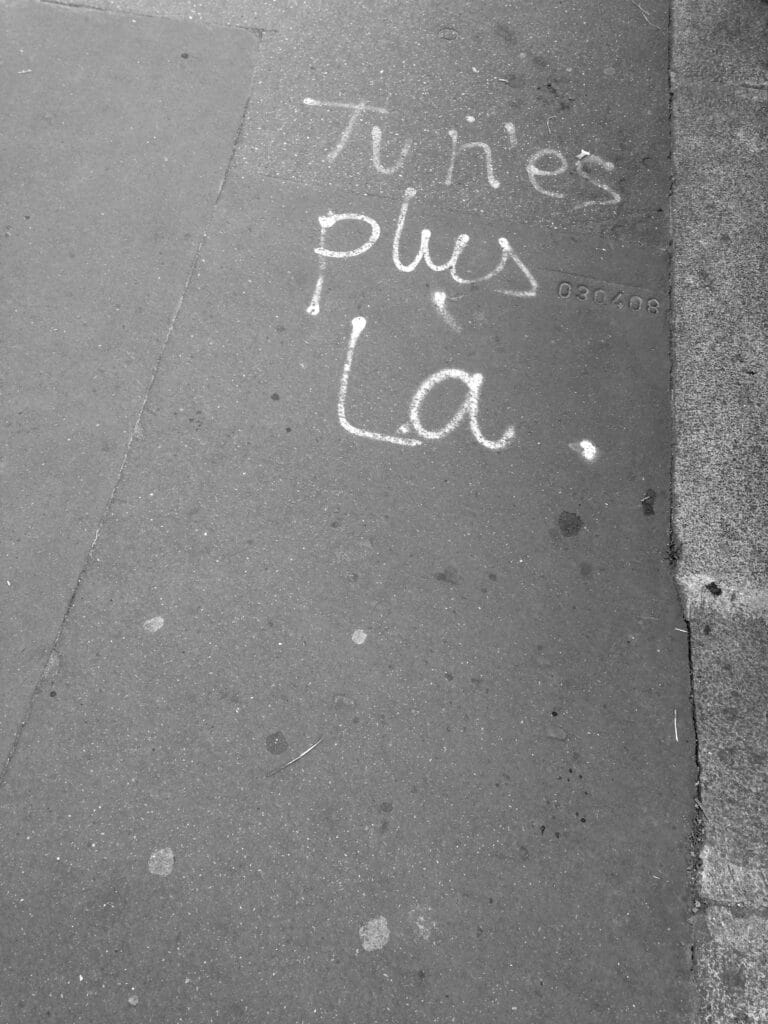 Tu n'es
plus
030408
Là.